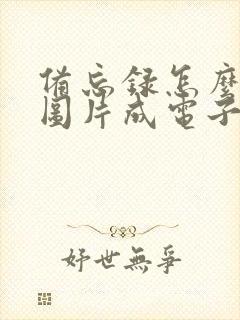 備忘録怎麼
圖片成電子
妤世無爭